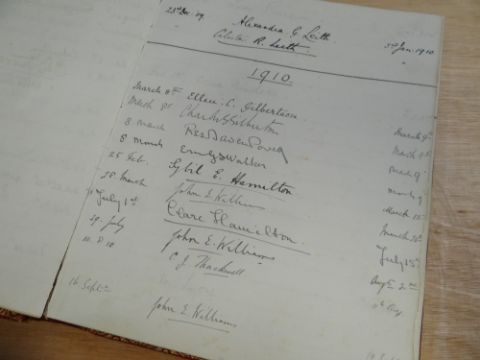 23rd Dec. 09. Alexandra G Leith 3rd Jan. 1910
" R. Leith "
1910
March 8th Ellen C. Gilbertson. March 9th
March 8th Charles Gilbertson March 9th
8 March March 9
8 March Emily Walker March 9
25 Feb. Sybil E. Hamilton March 15
28 March John E Williams March
July 1st Clare Hamilton. July 15th
29. July John E. Williams Aug 2nd
11. 8 10 C J Thacknell Aug
16 Sept John E Williams